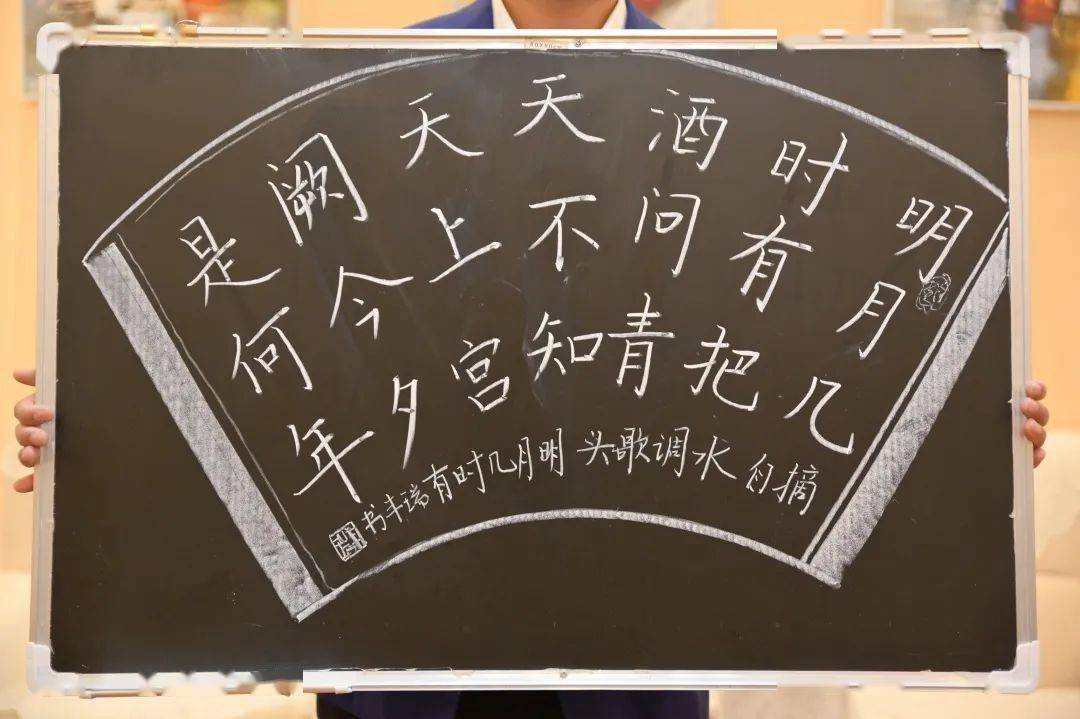 明月几
时有把
酒问青
天不知
天上宫
阙今夕
是何年
摘自 水调歌头 明月几时有 瑞丰书